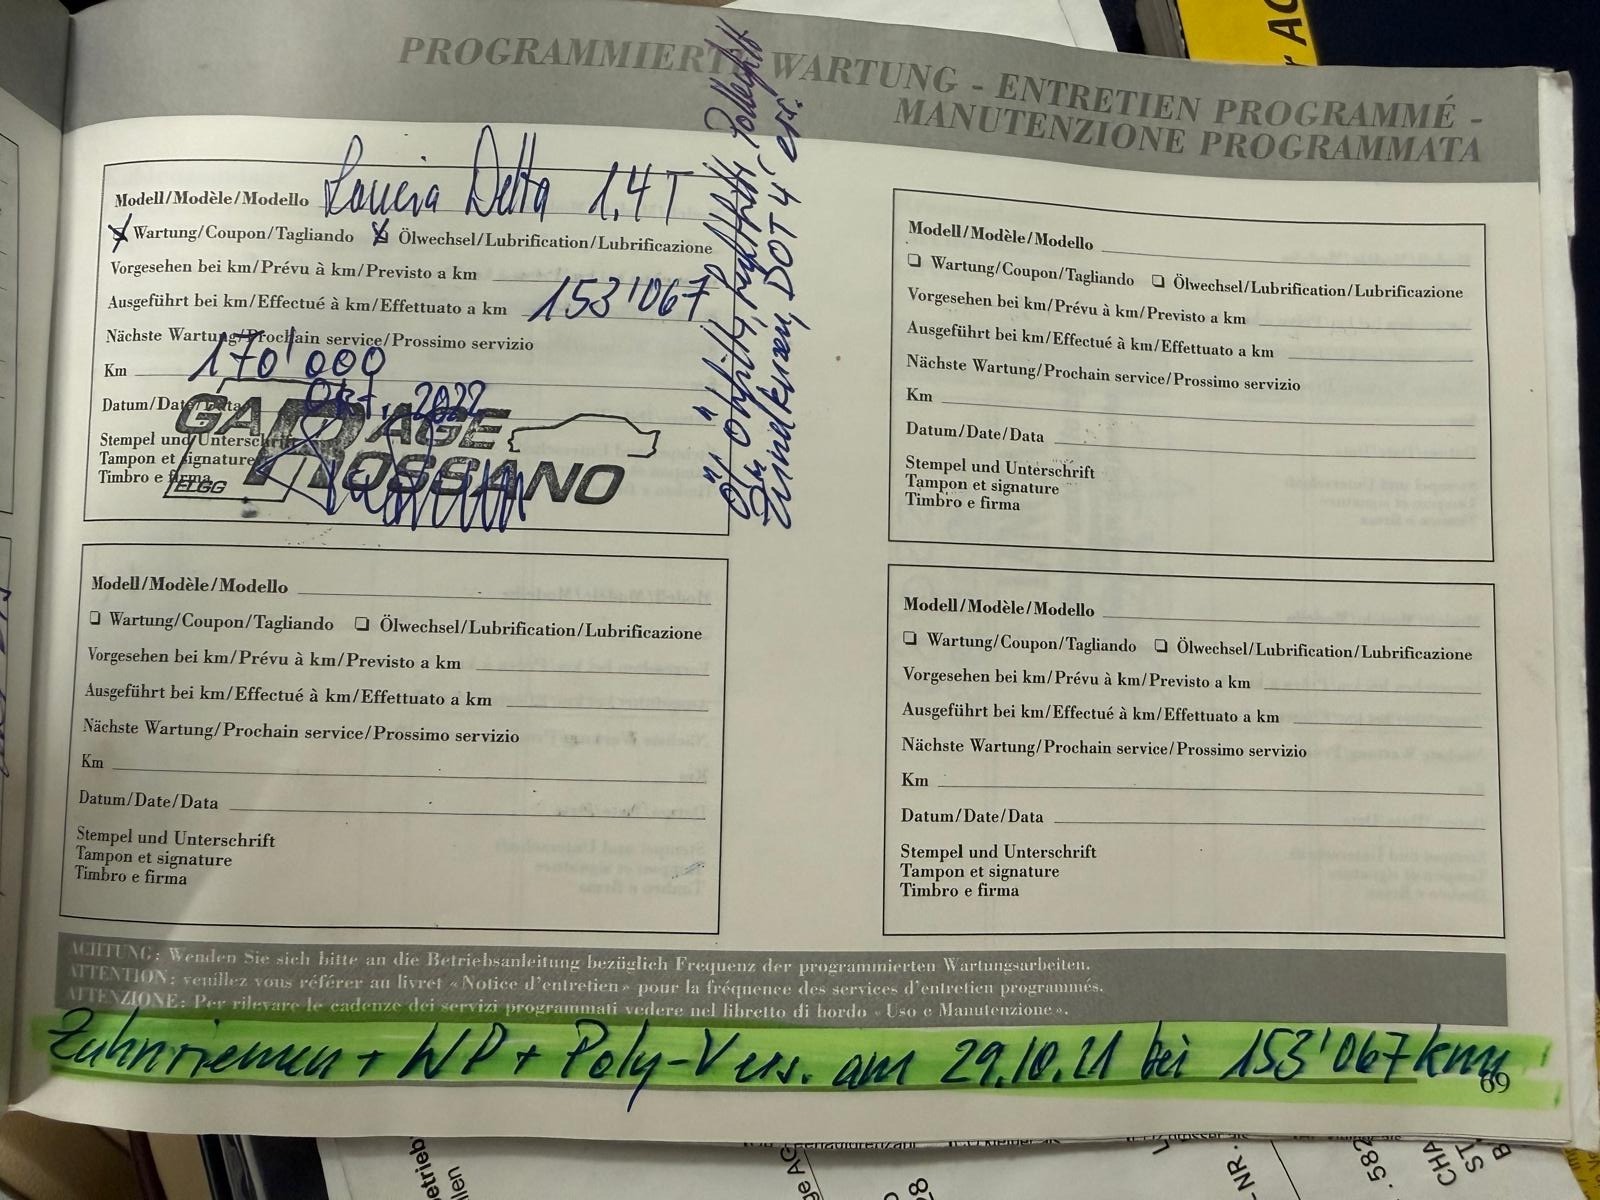 PROGRAMMIERTE WARTUNG - ENTRETIEN PROGRAMMÉ -
MANUTENZIONE PROGRAMMATA
Modell/Modèle/Modello Lancia Delta 1.4 T
Wartung/Coupon/Tagliando Ölwechsel/Lubrification/Lubrificazione
Vorgesehen bei km/Prévu à km/Previsto a km
Ausgeführt bei km/Effectué à km/Effettuato a km 153'067
Nächste Wartung/Prochain service/Prossimo servizio
Km 170'000
Datum/Date/Data Okt. 2022
Stempel und Unterschrift
Tampon et signature
Timbro e firma
GARAGE
ROSSANO
ELGG
Öl, Ölfilter, Luftfilter, Pollenfilt
Zündkerzen, DOT 4 ers.
Modell/Modèle/Modello
Wartung/Coupon/Tagliando Ölwechsel/Lubrification/Lubrificazione
Vorgesehen bei km/Prévu à km/Previsto a km
Ausgeführt bei km/Effectué à km/Effettuato a km
Nächste Wartung/Prochain service/Prossimo servizio
Km
Datum/Date/Data
Stempel und Unterschrift
Tampon et signature
Timbro e firma
Modell/Modèle/Modello
Wartung/Coupon/Tagliando Ölwechsel/Lubrification/Lubrificazione
Vorgesehen bei km/Prévu à km/Previsto a km
Ausgeführt bei km/Effectué à km/Effettuato a km
Nächste Wartung/Prochain service/Prossimo servizio
Km
Datum/Date/Data
Stempel und Unterschrift
Tampon et signature
Timbro e firma
Modell/Modèle/Modello
Wartung/Coupon/Tagliando Ölwechsel/Lubrification/Lubrificazione
Vorgesehen bei km/Prévu à km/Previsto a km
Ausgeführt bei km/Effectué à km/Effettuato a km
Nächste Wartung/Prochain service/Prossimo servizio
Km
Datum/Date/Data
Stempel und Unterschrift
Tampon et signature
Timbro e firma
ACHTUNG: Wenden Sie sich bitte an die Betriebsanleitung bezüglich Frequenz der programmierten Wartungsarbeiten.
ATTENTION: veuillez vous référer au livret «Notice d'entretien» pour la fréquence des services d'entretien programmés.
ATTENZIONE: Per rilevare le cadenze dei servizi programmati vedere nel libretto di bordo «Uso e Manutenzione».
Zahnriemen + WP + Poly-V ers. am 29.10.21 bei 153'067 km
69